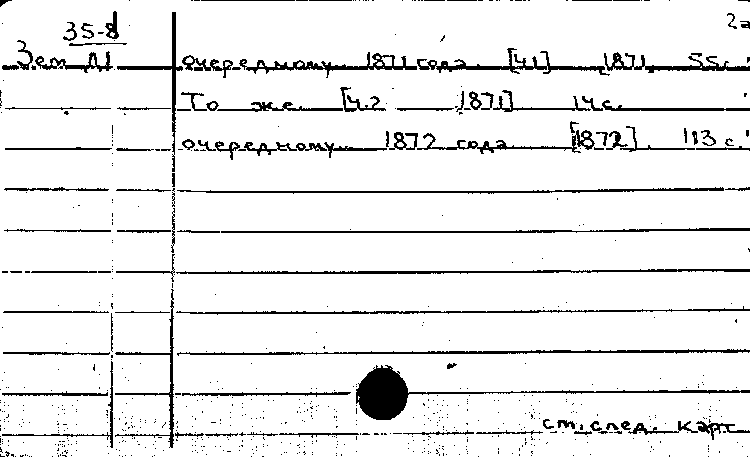 35-8
2а
Зем Л1 очередному 1871 года [ч1] 1871, 55с.
То же [ч.2 1871] 14с.
очередному 1872 года [1872]. 113 с.
ст. след. карт